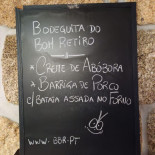 Bodeguita do
Bom Retiro
* Creme de Abóbora
* Barriga de Porco
c/ Batata assada no Forno
www.BBR.PT